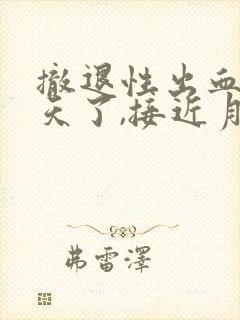 撤退性出血
天了,接近月
弗雷澤